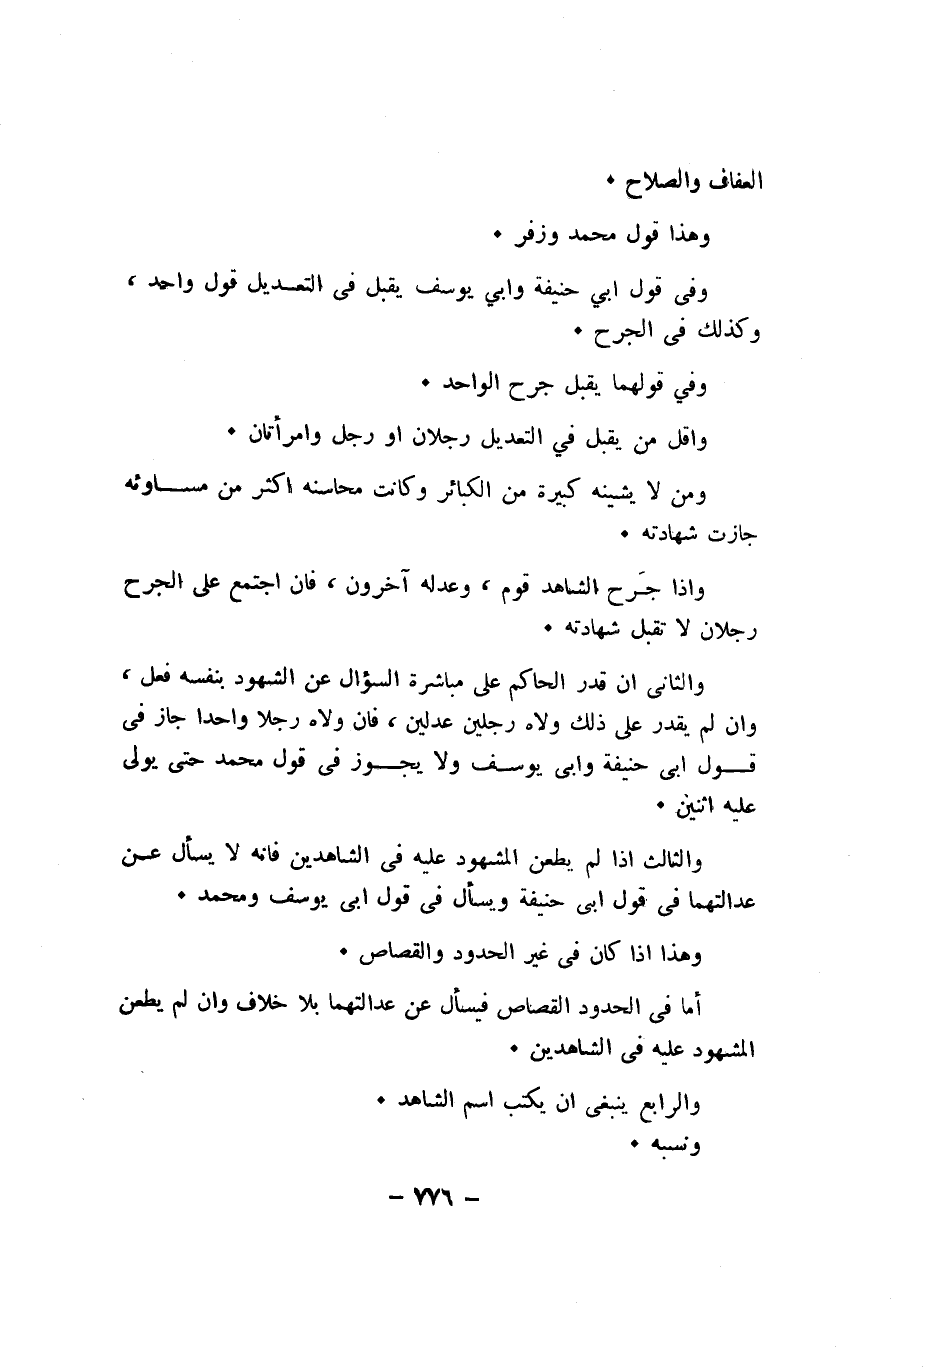 العفاف والصلاح •
وهذا قول محمد وزفر •
وفى قول ابي حنيفة وابي يوسف يقبل فى التعـديل قول واحد ،
وكذلك فى الجرح •
وفي قولهما يقبل جرح الواحد •
واقل من يقبل في التعديل رجلان او رجل وامرأتان •
ومن لا يشينه كبيرة من الكبائر وكانت محاسنه اكثر من مســاوئه
جازت شهادته •
واذا جَرح الشاهد قوم ، وعدله آخرون ، فان اجتمع على الجرح
رجلان لا تقبل شهادته •
والثانى ان قدر الحاكم على مباشرة السؤال عن الشهود بنفسه فعل ،
وان لم يقدر على ذلك ولاه رجلين عدلين ، فان ولاه رجلا واحدا جاز فى
قــول ابى حنيفة وابى يوســف ولا يجــوز فى قول محمد حتى يولى
عليه اثنين •
والثالث اذا لم يطعن المشهود عليه فى الشاهدين فانه لا يسأل عــن
عدالتهما فى قول ابى حنيفة ويسأل فى قول ابى يوسف ومحمد •
وهذا اذا كان فى غير الحدود والقصاص •
أما فى الحدود القصاص فيسأل عن عدالتهما بلا خلاف وان لم يطعن
المشهود عليه فى الشاهدين •
والرابع ينبغى ان يكتب اسم الشاهد •
ونسبه •
– ٧٧٦ –